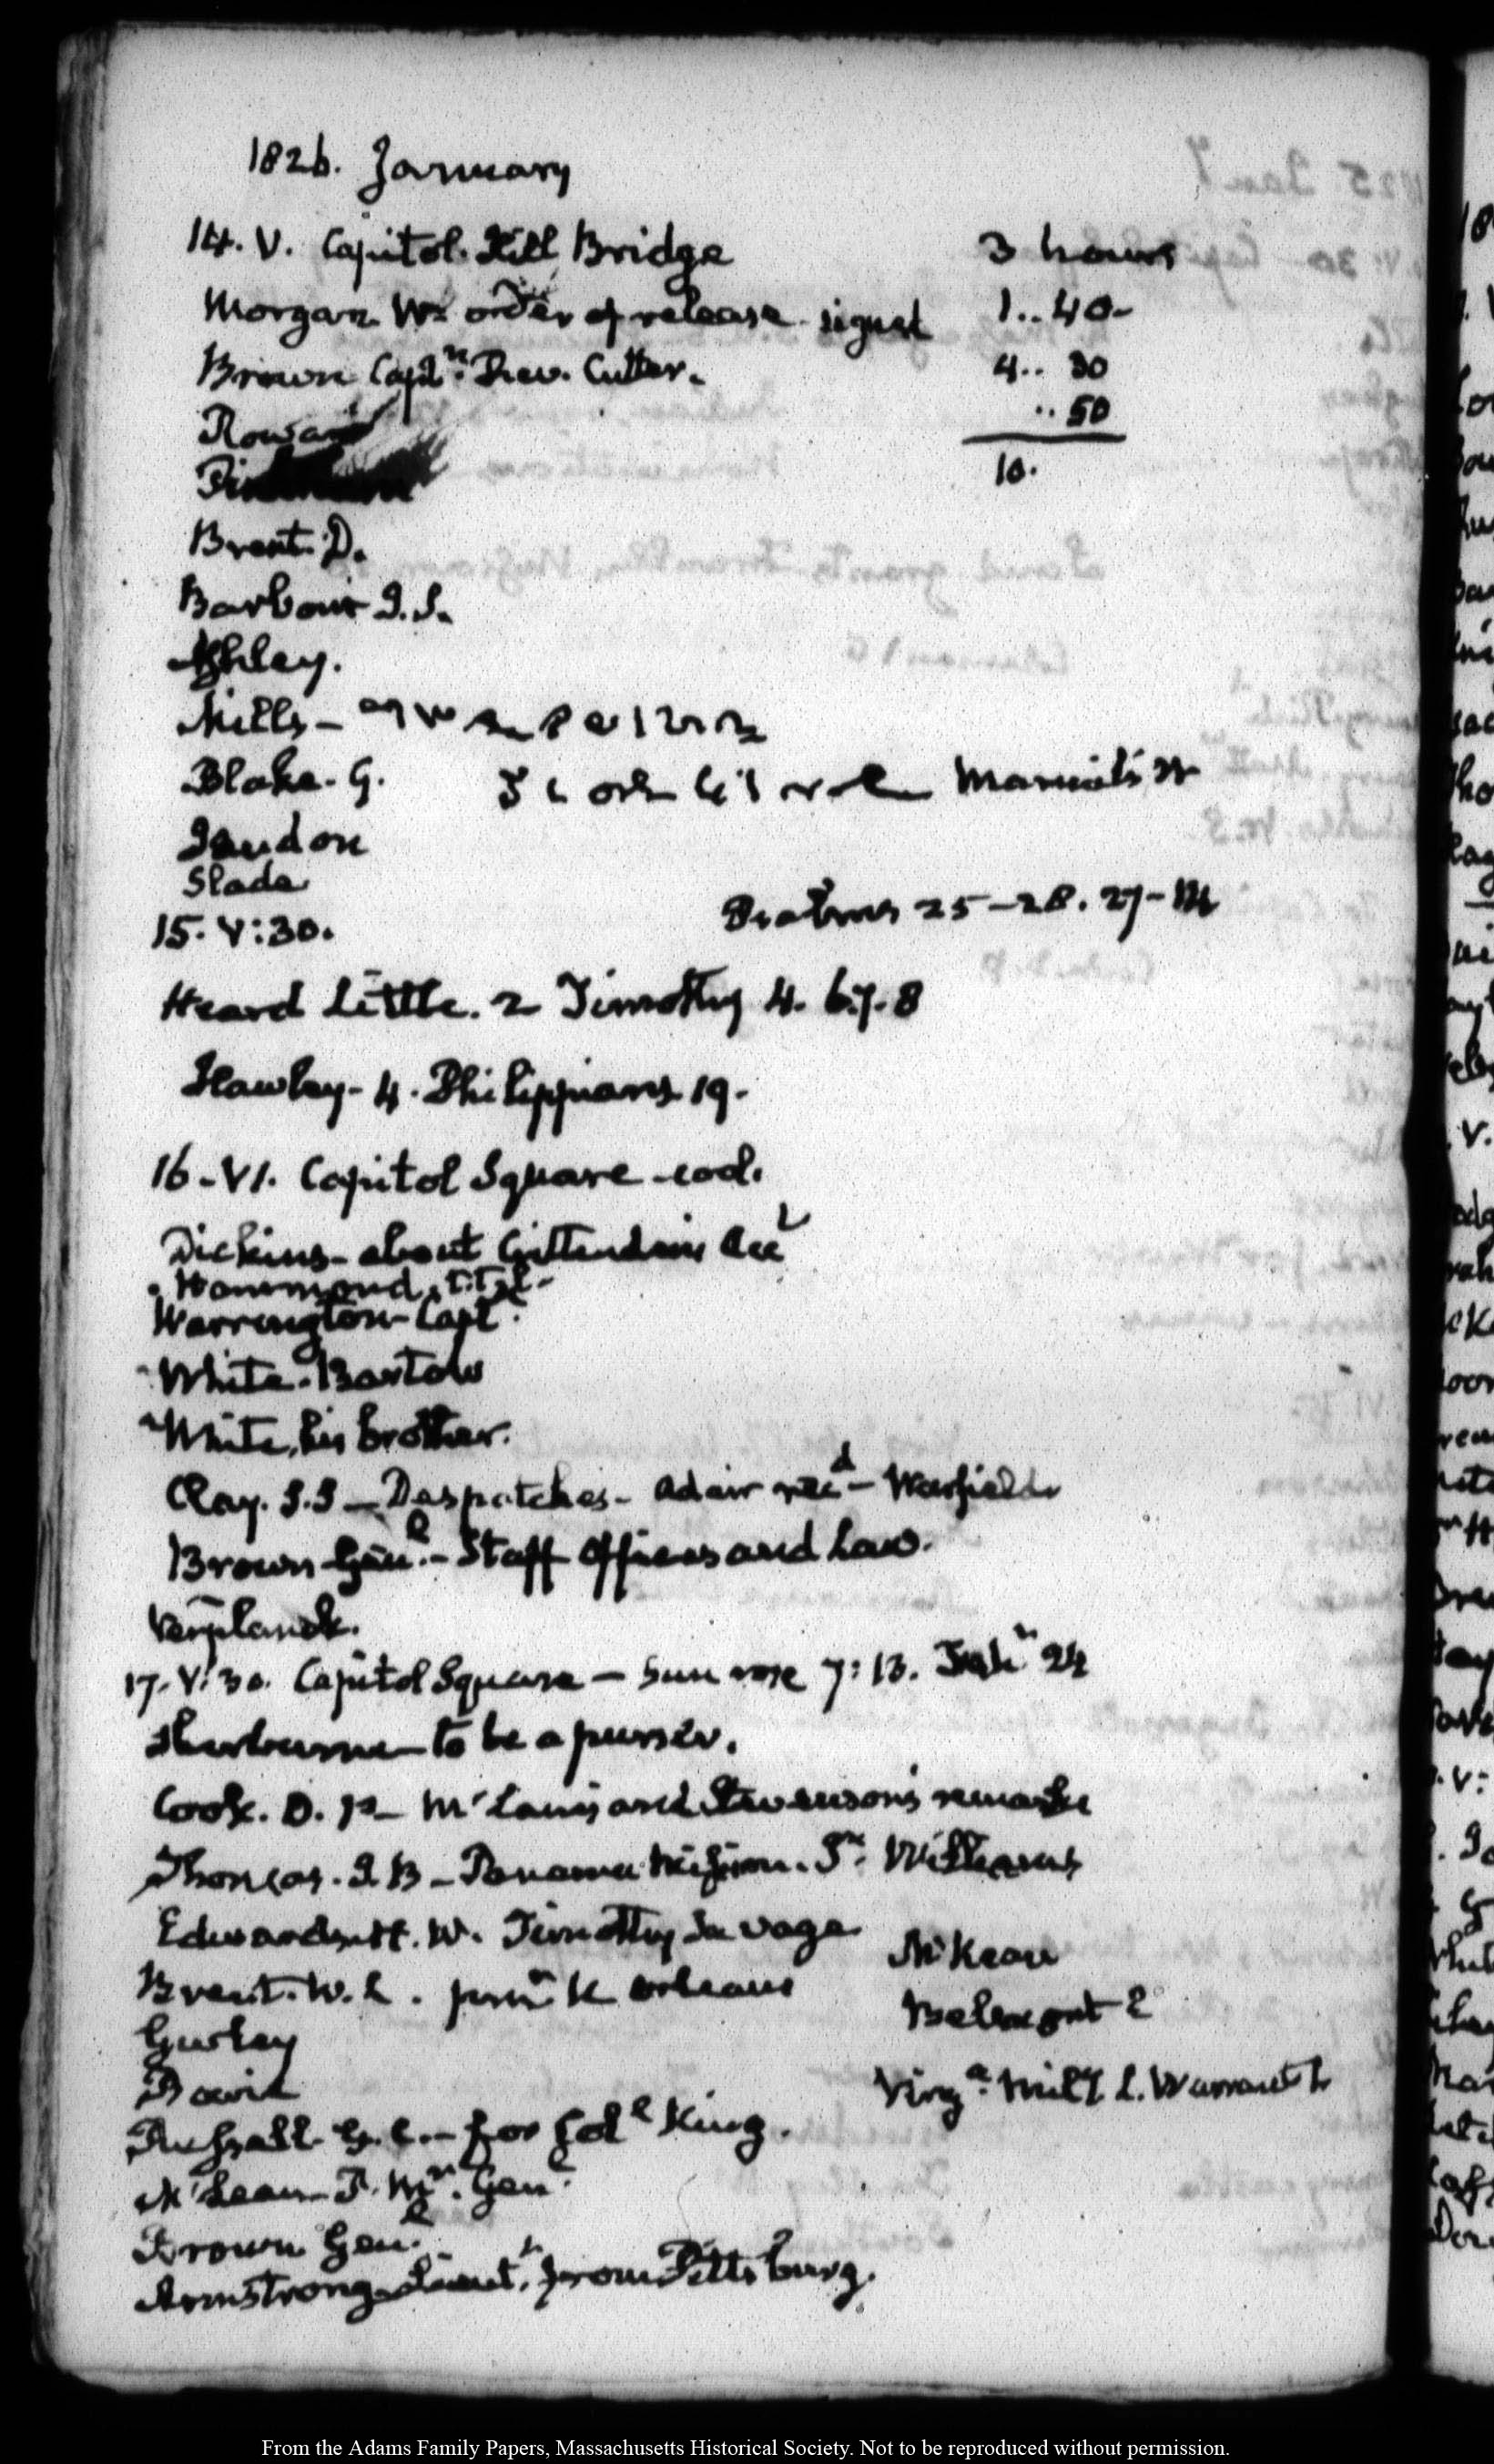 1826. January
14. V. Capitol. Hill Bridge 3 hours
Morgan Wm order of release signed 1..40-
Brown Captn. Rev. Cutter. 4.. 30
Rowan ..50
10.
Brent. D.
Barbour J.S.
Ashley.
Mills-
Blake. G.
Slade
15. V:30. Psalms 25-28. 27-14
Heard Little. 2 Timothy 4. 6.7.8
Hawley- 4. Philippians 19.
16-VI. Capitol Square -eod.
Dickins- about
Hammond,
Warrington- Capt.
White. Bartow
White, his brother.
Clay. S.S- Despatches- Adair recd- Warfield
Brown Genl.- Staff Officers and Law.
Verplanck.
17. V:30. Capitol Square - Sun rose 7:13. 24
to be a purser.
Cook. D. P- McLane's and Stevenson's remarks
Thomas. J. B- Panama Mission. Williams
Edwards. H. W. Timothy Savage
McKean
Brent. W. L. Orleans
Gurley
Russell for Coll King.
Virga. Milty L. Warrants
McLean- P. Mr. Genl.
Brown Genl.
Armstrong Lieutt. from Pittsburg.
From the Adams Family Papers, Massachusetts Historical Society. Not to be reproduced without permission.